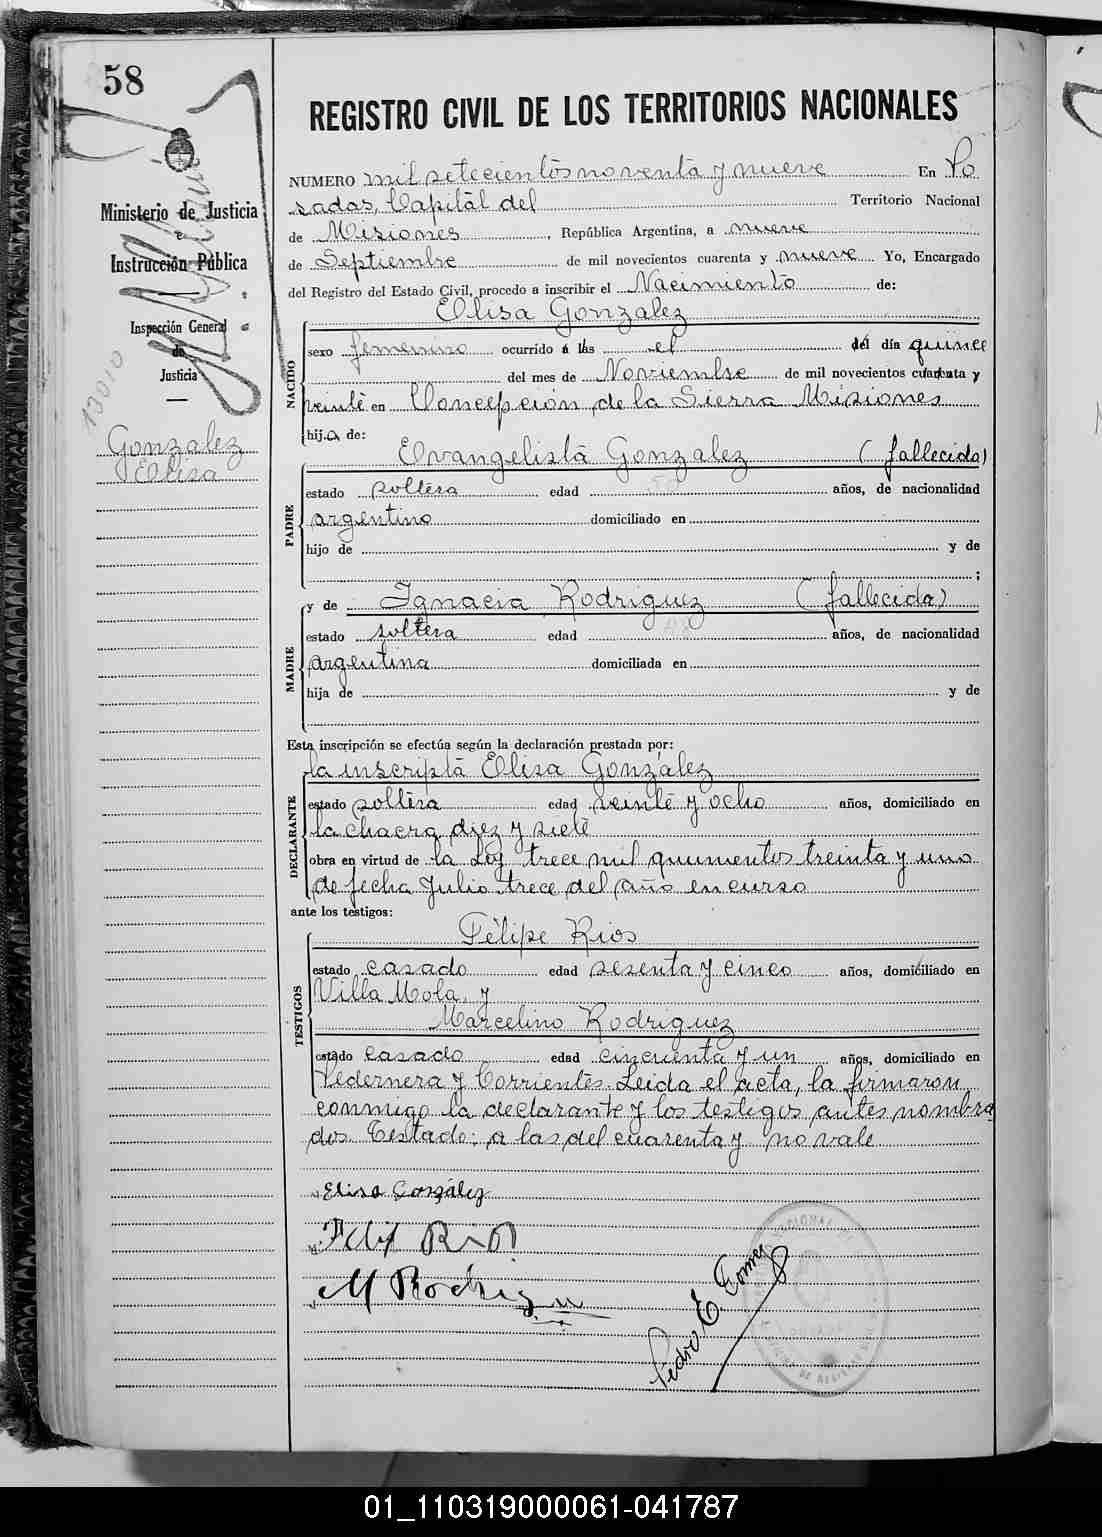 58
REGISTRO CIVIL DE LOS TERRITORIOS NACIONALES
Ministerio de Justicia
e
Instrucción Pública
Inspección General
de
Justicia
13010
Gonzalez
Elisa
NUMERO mil setecientos noventa y nueve En Po
sadas, Capital del Territorio Nacional
de Misiones, República Argentina, a nueve
de Septiembre de mil novecientos cuarenta y nueve Yo, Encargado
del Registro del Estado Civil, procedo a inscribir el Nacimiento de:
NACIDO
Elisa Gonzalez
sexo femenino ocurrido a las el del día quince
del mes de Noviembre de mil novecientos cuarenta y
veinte en Concepción de la Sierra Misiones
hija de:
PADRE
Evangelista Gonzalez (fallecido)
estado soltera edad años, de nacionalidad
argentino domiciliado en
hijo de y de
;
MADRE
y de Ignacia Rodriguez (fallecida)
estado soltera edad años, de nacionalidad
argentina domiciliada en
hija de y de
Esta inscripción se efectúa según la declaración prestada por:
DECLARANTE
la inscripta Elisa González
estado soltera edad veinte y ocho años, domiciliado en
la chacra diez y siete
obra en virtud de la Ley trece mil quinientos treinta y uno
de fecha Julio trece del año en curso
ante los testigos:
TESTIGOS
Felipe Rios
estado casado edad sesenta y cinco años, domiciliado en
Villa Mola, y
Marcelino Rodriguez
estado casado edad cincuenta y un años, domiciliado en
Pedernera y Corrientes. Leida el acta, la firmaron
conmigo la declarante y los testigos antes nombra
dos. Testado: a las del cuarenta y no vale
Elisa González
Felix Rios
M Rodrigu
Pedro E. Gomez
01_110319000061-041787